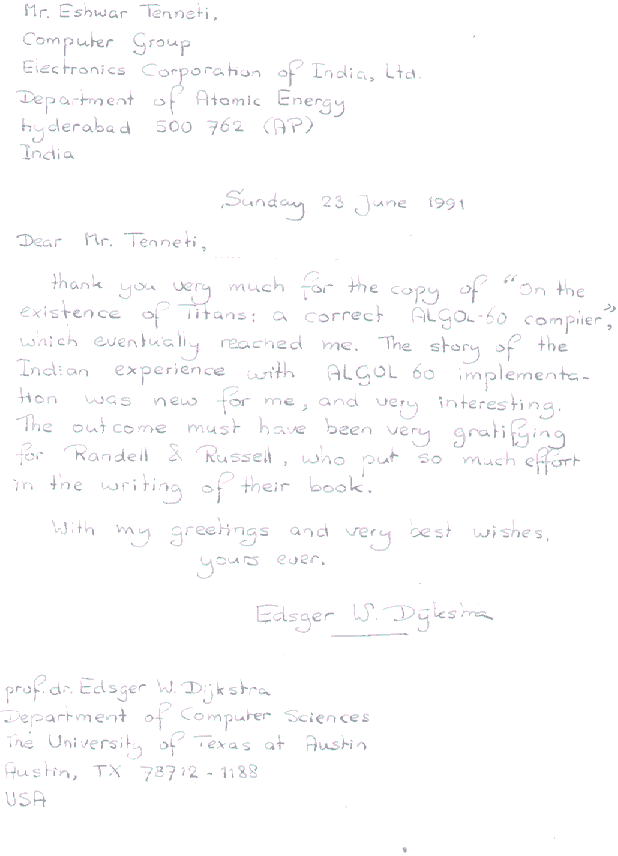 Mr. Eshwar Tenneti,
Computer Group
Electronics Corporation of India, Ltd.
Department of Atomic Energy
Hyderabad 500 762 (AP)
India
Sunday 23 June 1991
Dear Mr. Tenneti,
thank you very much for the copy of "On the
existence of Titans: a correct ALGOL-60 compiler",
which eventually reached me. The story of the
Indian experience with ALGOL 60 implementa-
tion was new for me, and very interesting.
The outcome must have been very gratifying
for Randell & Russell, who put so much effort
in the writing of their book.
With my greetings and very best wishes,
yours ever.
Edsger W. Dijkstra
prof. dr. Edsger W. Dijkstra
Department of Computer Sciences
The University of Texas at Austin
Austin, TX 78712-1188
USA